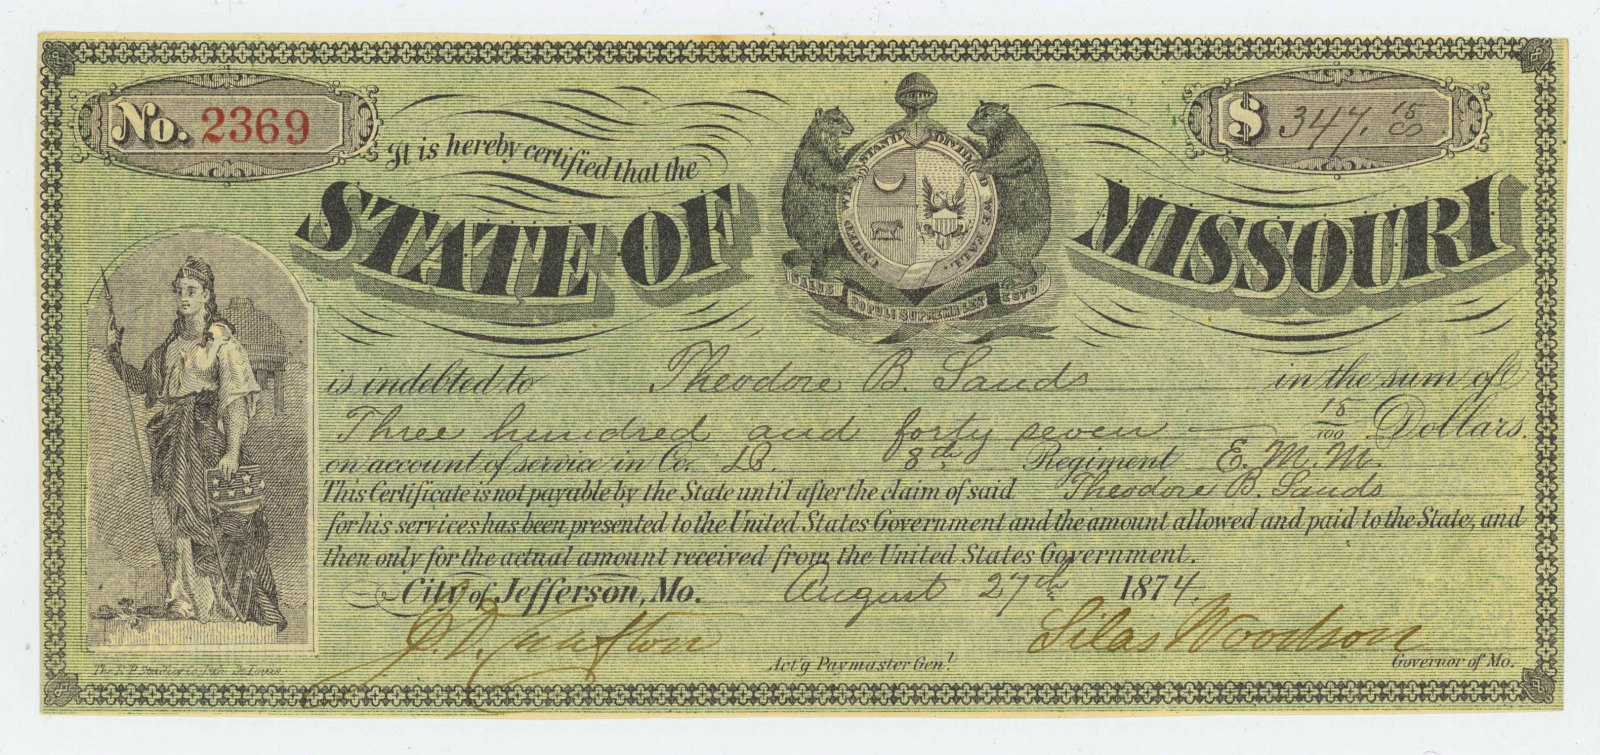 No. 2369
$ 347. 15/00
It is hereby certified that the
STATE OF MISSOURI
UNITED WE STAND DIVIDED WE FALL
SALUS POPULI SUPREMA LEX ESTO
is indebted to Theodore B. Sands in the sum of
Three hundred and forty seven 15/100 Dollars.
on account of service in Co. 8th Regiment E. M. M.
This Certificate is not payable by the State until after the claim of said Theodore B. Sands
for his services has been presented to the United States Government and the amount allowed and paid to the State, and
then only for the actual amount received from the United States Government.
City of Jefferson, Mo. August 27th 1874.
Silas Woodson
Act'g Paymaster Genl.
Governor of Mo.